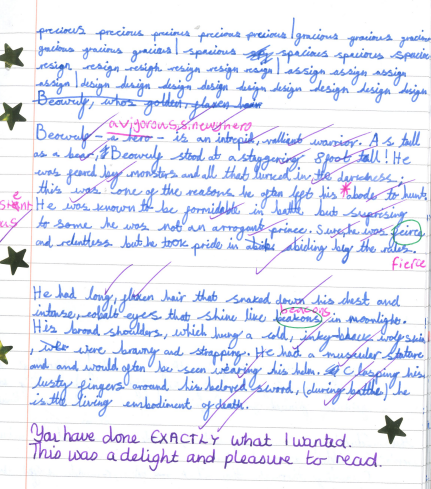 precious precious precious precious precious | gracious gracious gracious
gracious gracious gracious | spacious spacious spacious spacious
resign resign resign resign resign resign | assign assign assign
assign | design design design design design design design design
Beowulf, whos golden, flaxen hair
a vigorous, sinewy hero
Beowulf – a hero – is an intrepid, valliant warrior. As tall
as a bear, Beowulf stood at a staggering 8 foot tall! He
was feared by monsters and all that lurked in the darkness;
this was one of the reasons he often left his * abode to hunt.
He was known to be formidable in battle but suprising
to some he was not an arrogant prince. Sure he was feirce
and relentless but he took pride in abiding by the rules.
fierce
He had long, flaxen hair that snaked down his chest and
beacons
intense, cobalt eyes that shine like beakons in moonlight.
His broad shoulders, which hung a cold, inky-black wolf skin
, were brawny and strapping. He had a muscular stature
and and would often be seen wearing his helm. Clasping his
lusty fingers around his beloved sword, (during battle) he
is the living embodiment of death.
You have done EXACTLY what I wanted.
This was a delight and pleasure to read.